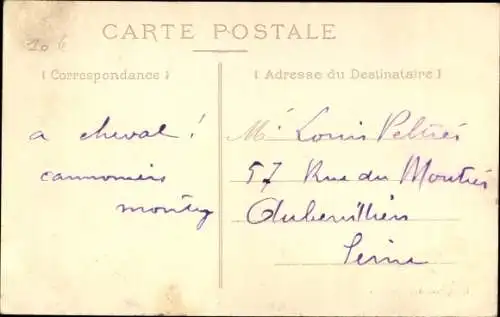 20 €
CARTE POSTALE
( Correspondance )
( Adresse du Destinataire )
a cheval !
cannoniers
montez
Mr Louis
57 Rue du Moutier
Aubervilliers
Seine